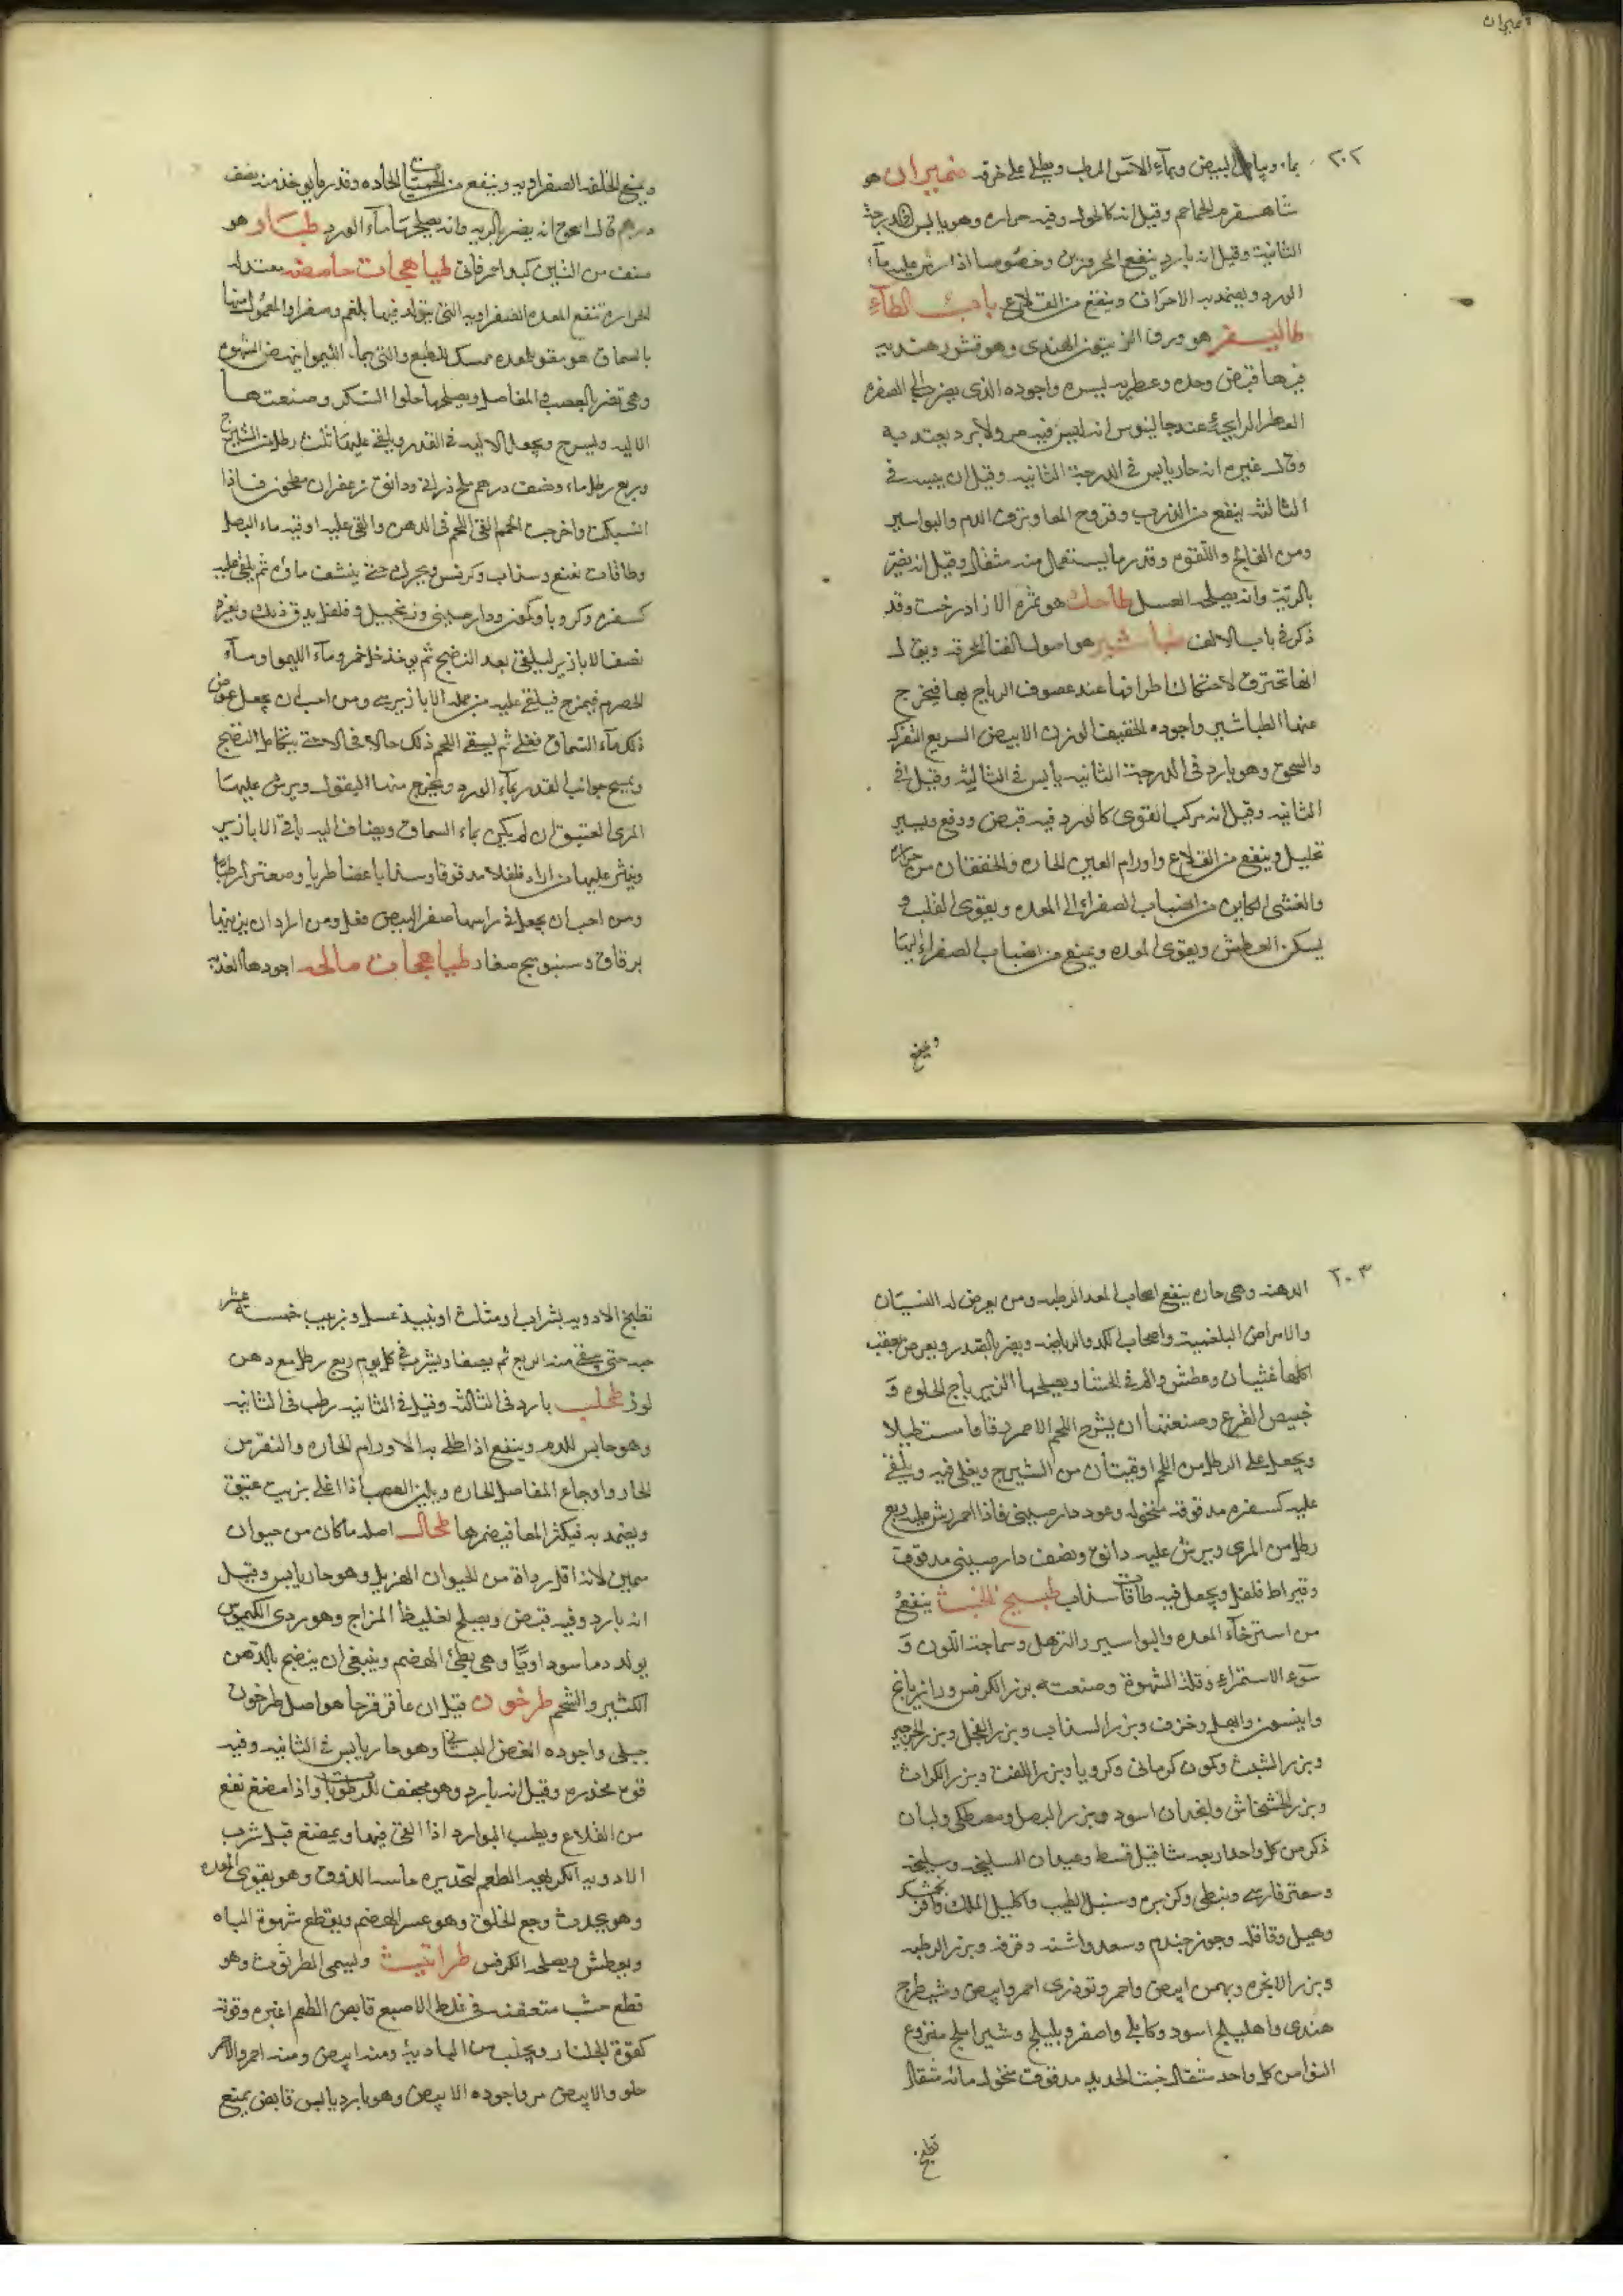 ضميران
٢٠٢
بماء وبياض البيض وبماء الاس الرطب ويطلى على خرقه ضميران هو
شاهسفرم الحماحم وقيل انه كالحوك وفيه حراره وهو يابس في الدرجة
الثانية وقيل انه بارد ينفع المحرورين وخصوصا اذا رش عليه ماء
الورد ويضمد به الاحراق وينفع من القلاع باب الطاء
طاليسفر هو ورق الزيتون الهندى وهو قشور هنديه
فيها قبض وحده وعطريه يسيره واجوده الذى يضرب الى الصفره
العطر الرايحة عند جالينوس انه ليس فيه حر ولا برد يعتد به
وقال غيره انه حار يابس فى الدرجة الثانيه وقيل ان يبسه فى
الثالثه ينفع من الذرب وقروح المعا ونزف الدم والبواسير
ومن الفالج واللقوه وقدر ما يستعمل منه مثقال وقيل انه يضر
بالرئة وانه يصلحه العسل طاحك هو ثمره الازاد درخت وقد
ذكر فى باب الالف طباشير هو اصول القنا المحرقه ويقال
انها تحترق لاحتكاك اطرافها عند عصوف الرياح بها فيخرج
منها الطباشير واجوده الخفيف الوزن الابيض السريع التفرك
والسحق وهو بارد فى الدرجة الثانيه يابس فى الثالثه وقيل فى
الثانيه وقيل انه مركب القوى كالورد فيه قبض ودفع ويسير
تحليل وينفع من القلاع واورام العين الحاره والخفقان من حراره
والغشى الكاين من انصباب الصفراء الى المعده ويقوى القلب و
يسكن العطش ويقوى المعده ويمنع من انصباب الصفراء اليها
ويمنع
ويمنع الخلفه الصفراويه وينفع من الحميات الحاده وقدر ما يوخذ منه نصف
درهم قال اسحق انه يضر بالريه وانه يصلحها ماء الورد طبار هو
صنف من التين كبد احمر قانى طباهجات حامضه معتدله
الحراره تنفع المعده الصفراويه التى يتولد فيها بلغم وصفرا والمعمول منها
بالسماق هو مقو للمعده ممسك للطبع والتى بماء الليمو تنهض الشهوه
وهى تضر بالعصب والمفاصل ويصلحها حلوا السكر وصنعتها
الاليه وليسرح ويجعل الاليه فى القدر ويلقى عليها ثلث رطل من الشيرج
وربع رطل ماء ونصف درهم ملح ذرانى ودانق زعفران مطحون فاذا
انسبكت واخرجت الحمم القى اللحم فى الدهن والقى عليه اوقيه ماء البصل
وطاقات نعنع وسذاب وكرفس ويحرك حتى ينشف ماؤه ثم يلقى عليه
كسفره وكرويا وكمون ودار صينى وزنجبيل وفلفل يدق ذلك ويعزل
نصف الابازير ليلقى بعد النضج ثم يوخذ خل خمر وماء الليمو او ماء
الحصرم فيمزج فيلقى عليه من جمله الابازير شى ومن احب ان يجعل عوض
ذلك ماء السماق فعل ثم يسقى اللحم ذلك حالا فحالا حتى يتكامل النضج
ويمسح جوانب القدر بماء الورد ويخرج منها البقول ويرش عليها
المرى العتيق ان لم يكن بماء السماق ويضاف اليه باقى الابازير
وينثر عليها من اراد فلفلا مدقوقا وسذابا غضا طريا وصعتر رطبا
ومن احب ان يجعل فى راسها صفر البيض فعل ومن اراد ان يزينها
برقاق وسنبوسج صغار طباهجات مالحه اجودها العذبه
٢٠٣
الدهنه وهى حاره ينفع اصحاب المعد الرطبه ومن يعرض له النسيان
والامراض البلغمية واصحاب الكد والرياضه ويضر بالمقدر ويعرض عقب
اكلها غثيان وعطش والم فى الحشا ويصلحها الزيرباج الحلوه و
خبيص القرع وصنعتها ان يشرح اللحم الاحمر رقاقا مستطيلا
ويجعل على الرطل من اللحم اوقيتان من الشيرج ويغلى فيه ويلقى
عليه كسفره مدقوقه منخوله وعود دار صينى فاذا احمر رش عليه ربع
رطل من المرى ويرش عليه دانق ونصف دار صينى مدقوق
وقيراط فلفل ويجعل فيه طاقات سذاب طبيخ الخبث ينفع
من استرخاء المعده والبواسير والترهل وسماجة اللون و
سوء الاستمراء وقلة الشهوة وصنعته بزر الكرفس ورازيانج
وانيسون وابهل وخزف وبزر السذاب وبزر الفجل وبزر الجرجير
وبزر الشبث وكمون كرمانى وكرويا وبزر اللفت وبزر الكراث
وبزر الخشخاش وانجدان اسود وبزر البصل ومصطكى ولبان
ذكر من كل واحد اربعه مثاقيل قسط وعيدان السليخه وسليخه
وصعتر فارسى ونبطى وكزبره وسنبل الطيب واكليل الملك وافرنجمشك
وهيل وقاقله وجوز جندم وسعد واشنه وقرفه وبزر الرطبه
وبزر الانجره وبهمن ابيض واحمر وتوذرى احمر وابيض وشيطرج
هندى واهليلج اسود وكابلى واصفر وبليلج وشير املج منزوع
النوا من كل واحد مثقال خبث الحديد مدقوق منخول مائه مثقال
تطبخ
تطبخ الادويه بشراب او مثلث او نبيذ عسل وزبيب خمسة عشر
حبه حتى يبقى منه الربع ثم يصفا ويشرب فى كل يوم ربع رطل مع دهن
لوز طحلب بارد فى الثالثه وقيل فى الثانيه رطب فى الثانيه
وهو حابس للدم وينفع اذا طلى به الاورام الحاره والنقرس
الحار واوجاع المفاصل الحاره ويلين العصب اذا اغلى بزيت عتيق
ويضمد به فيكثر المعا فيضمرها طحال اصله ما كان من حيوان
سمين لانه اقل رداة من الحيوان الهزيل وهو حار يابس وقيل
انه بارد وفيه قبض ويصلح لغليظا المزاج وهو ردى الكيموس
يولد دما سوداويا وهى بطئ الهضم وينبغى ان ينضج بالدهن
الكثير والشحم طرخون قيل ان عاقرقرحا هو اصل طرخون
جبلى واجوده الغض البستانى وهو حار يابس فى الثانيه وفيه
قوه مخدره وقيل انه بارد وهو مجفف للرطوبات واذا مضغ نفع
من القلاع ويطيب البوارد اذا القى فيها ويمضغ قبل شرب
الادويه الكريهه الطعم لتخديره حاسه الذوق وهو يقوى المعده
وهو يحدث وجع الحلق وهو عسر الهضم ويقطع شهوة الباه
ويعطش ويصلحه الكرفس طراثيث ويسمى الطرثوث وهو
قطع خشب متعقفه فى غلظ الاصبع قابض الطعم اغبره وقوته
كقوة الجلنار ويجلب من الباديه ومنه ابيض ومنه احمر والاحمر
حلو والابيض مر واجوده الابيض وهو بارد يابس قابض يمنع